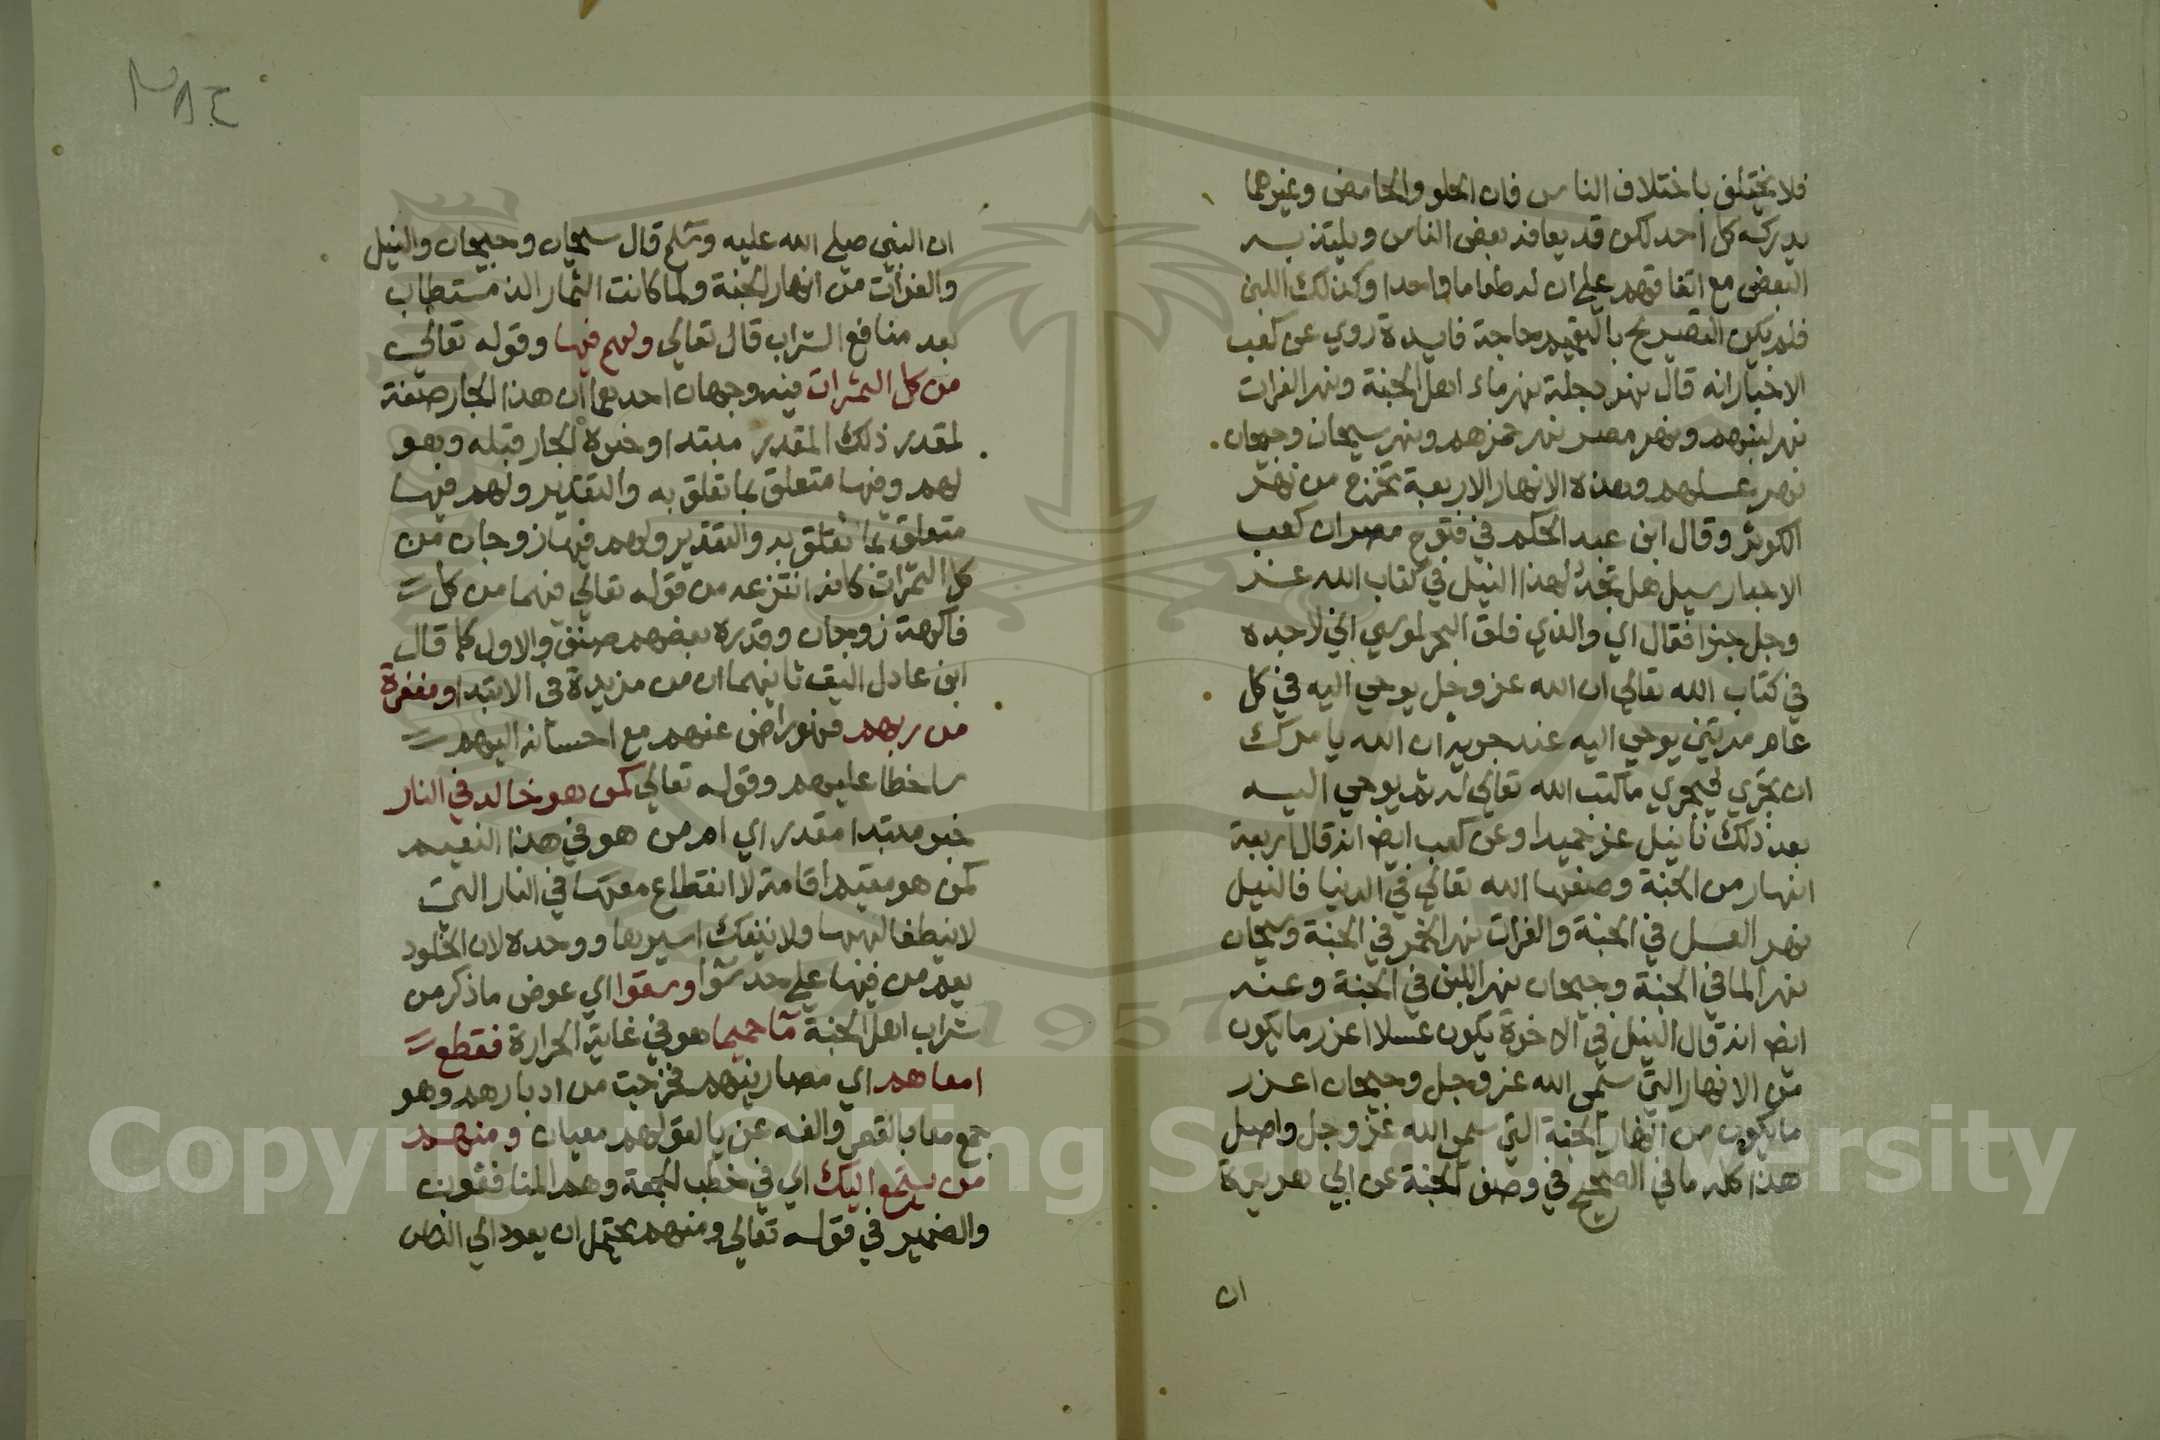 فلا يختلف باختلاف الناس فان الحلو والحامض وغيرهما
يدركه كل احد لكن قد يعافه بعض الناس ويلتذ به
البعض مع اتفاقهم علي ان له طعما واحدا وكذلك اللبن
فلم يكن التصريح بالتعميم حاجة فايدة روي عن كعب
الاخبار انه قال نهر دجلة نهر ماء اهل الجنة ونهر الفرات
نهر لبنهم ونهر مصر نهر خمرهم ونهر سيحان وجيحان
نهر عسلهم وهذه الانهار الاربعة تخرج من نهر
الكوثر وقال ابن عبد الحكم في فتوح مصر ان كعب
الاحبار سيل هل تجد لهذا النيل في كتاب الله عز
وجل خبرا فقال اي والذي فلق البحر لموسي اني لاجده
في كتاب الله تعالي ان الله عز وجل يوحي اليه في كل
عام مرتين يوحي اليه عند جريه ان الله يامرك
ان تجري فيجري ما كتب الله تعالي له ثم يوحي اليه
بعد ذلك يا نيل غر حميدا وعن كعب ايض انه قال اربعة
انهار من الجنة وضعها الله تعالي في الدنيا فالنيل
نهر العسل في الجنة والفرات نهر الخمر في الجنة وسيحان
نهر الما في الجنة وجيحان نهر اللبن في الجنة وعنه
ايض انه قال النيل في الاخرة يكون عسلا اغزر ما يكون
من الانهار التي سمي الله عز وجل وجيحان اغزر
ما يكون من انهار الجنة التي سمي الله عز وجل واصل
هذا كله ما في الصحيح في وصف الجنة عن ابي هريرة
ان
ان النبي صلي الله عليه وسلم قال سيحان وجيحان والنيل
والفرات من انهار الجنة ولما كانت الثمار الذ مستطاب
بعد منافع الشراب قال تعالي ولهم فيها وقوله تعالي
من كل الثمرات فيه وجهان احدهما ان هذا الجار صفة
لمقدر ذلك المقدر مبتدا وخبره الجار قبله وهو
لهم وفيها متعلق بما تعلق به والتقدير ولهم فيها
متعلق بما تعلق به والتقدير ولهم فيها زوجان من
كل الثمرات كانه انتزعه من قوله تعالي فيهما من كل
فاكهة زوجان وقدره بعضهم صنف والاول كما قال
ابن عادل اليق ثانيهما ان من مزيدة في الابتدا ومغفرة
من ربهم فهو راض عنهم مع احسانه اليهم
ساخطا عليهم وقوله تعالي كمن هو خالد في النار
خبر مبتدا مقدر اي ام من هو في هذا النعيم
كمن هو مقيم اقامة لا انقطاع معها في النار التي
لا ينطفا لهبها ولا ينفك اسيرها ووحده لان الخلود
يعم من فيها علي حد سوا وسقوا اي عوض ما ذكر من
شراب اهل الجنة ما حميما هو في غاية الحرارة فقطع
امعاهم اي مصارينهم فخرجت من ادبارهم وهو
جمع معا بالقصر والفه عن يا لقولهم معيان ومنهم
من يستمع اليك اي في خطب الجمعة وهم المنافقون
والضمير في قوله تعالي ومنهم يحتمل ان يعود الي الناس
Copyright © King Saud University
1957